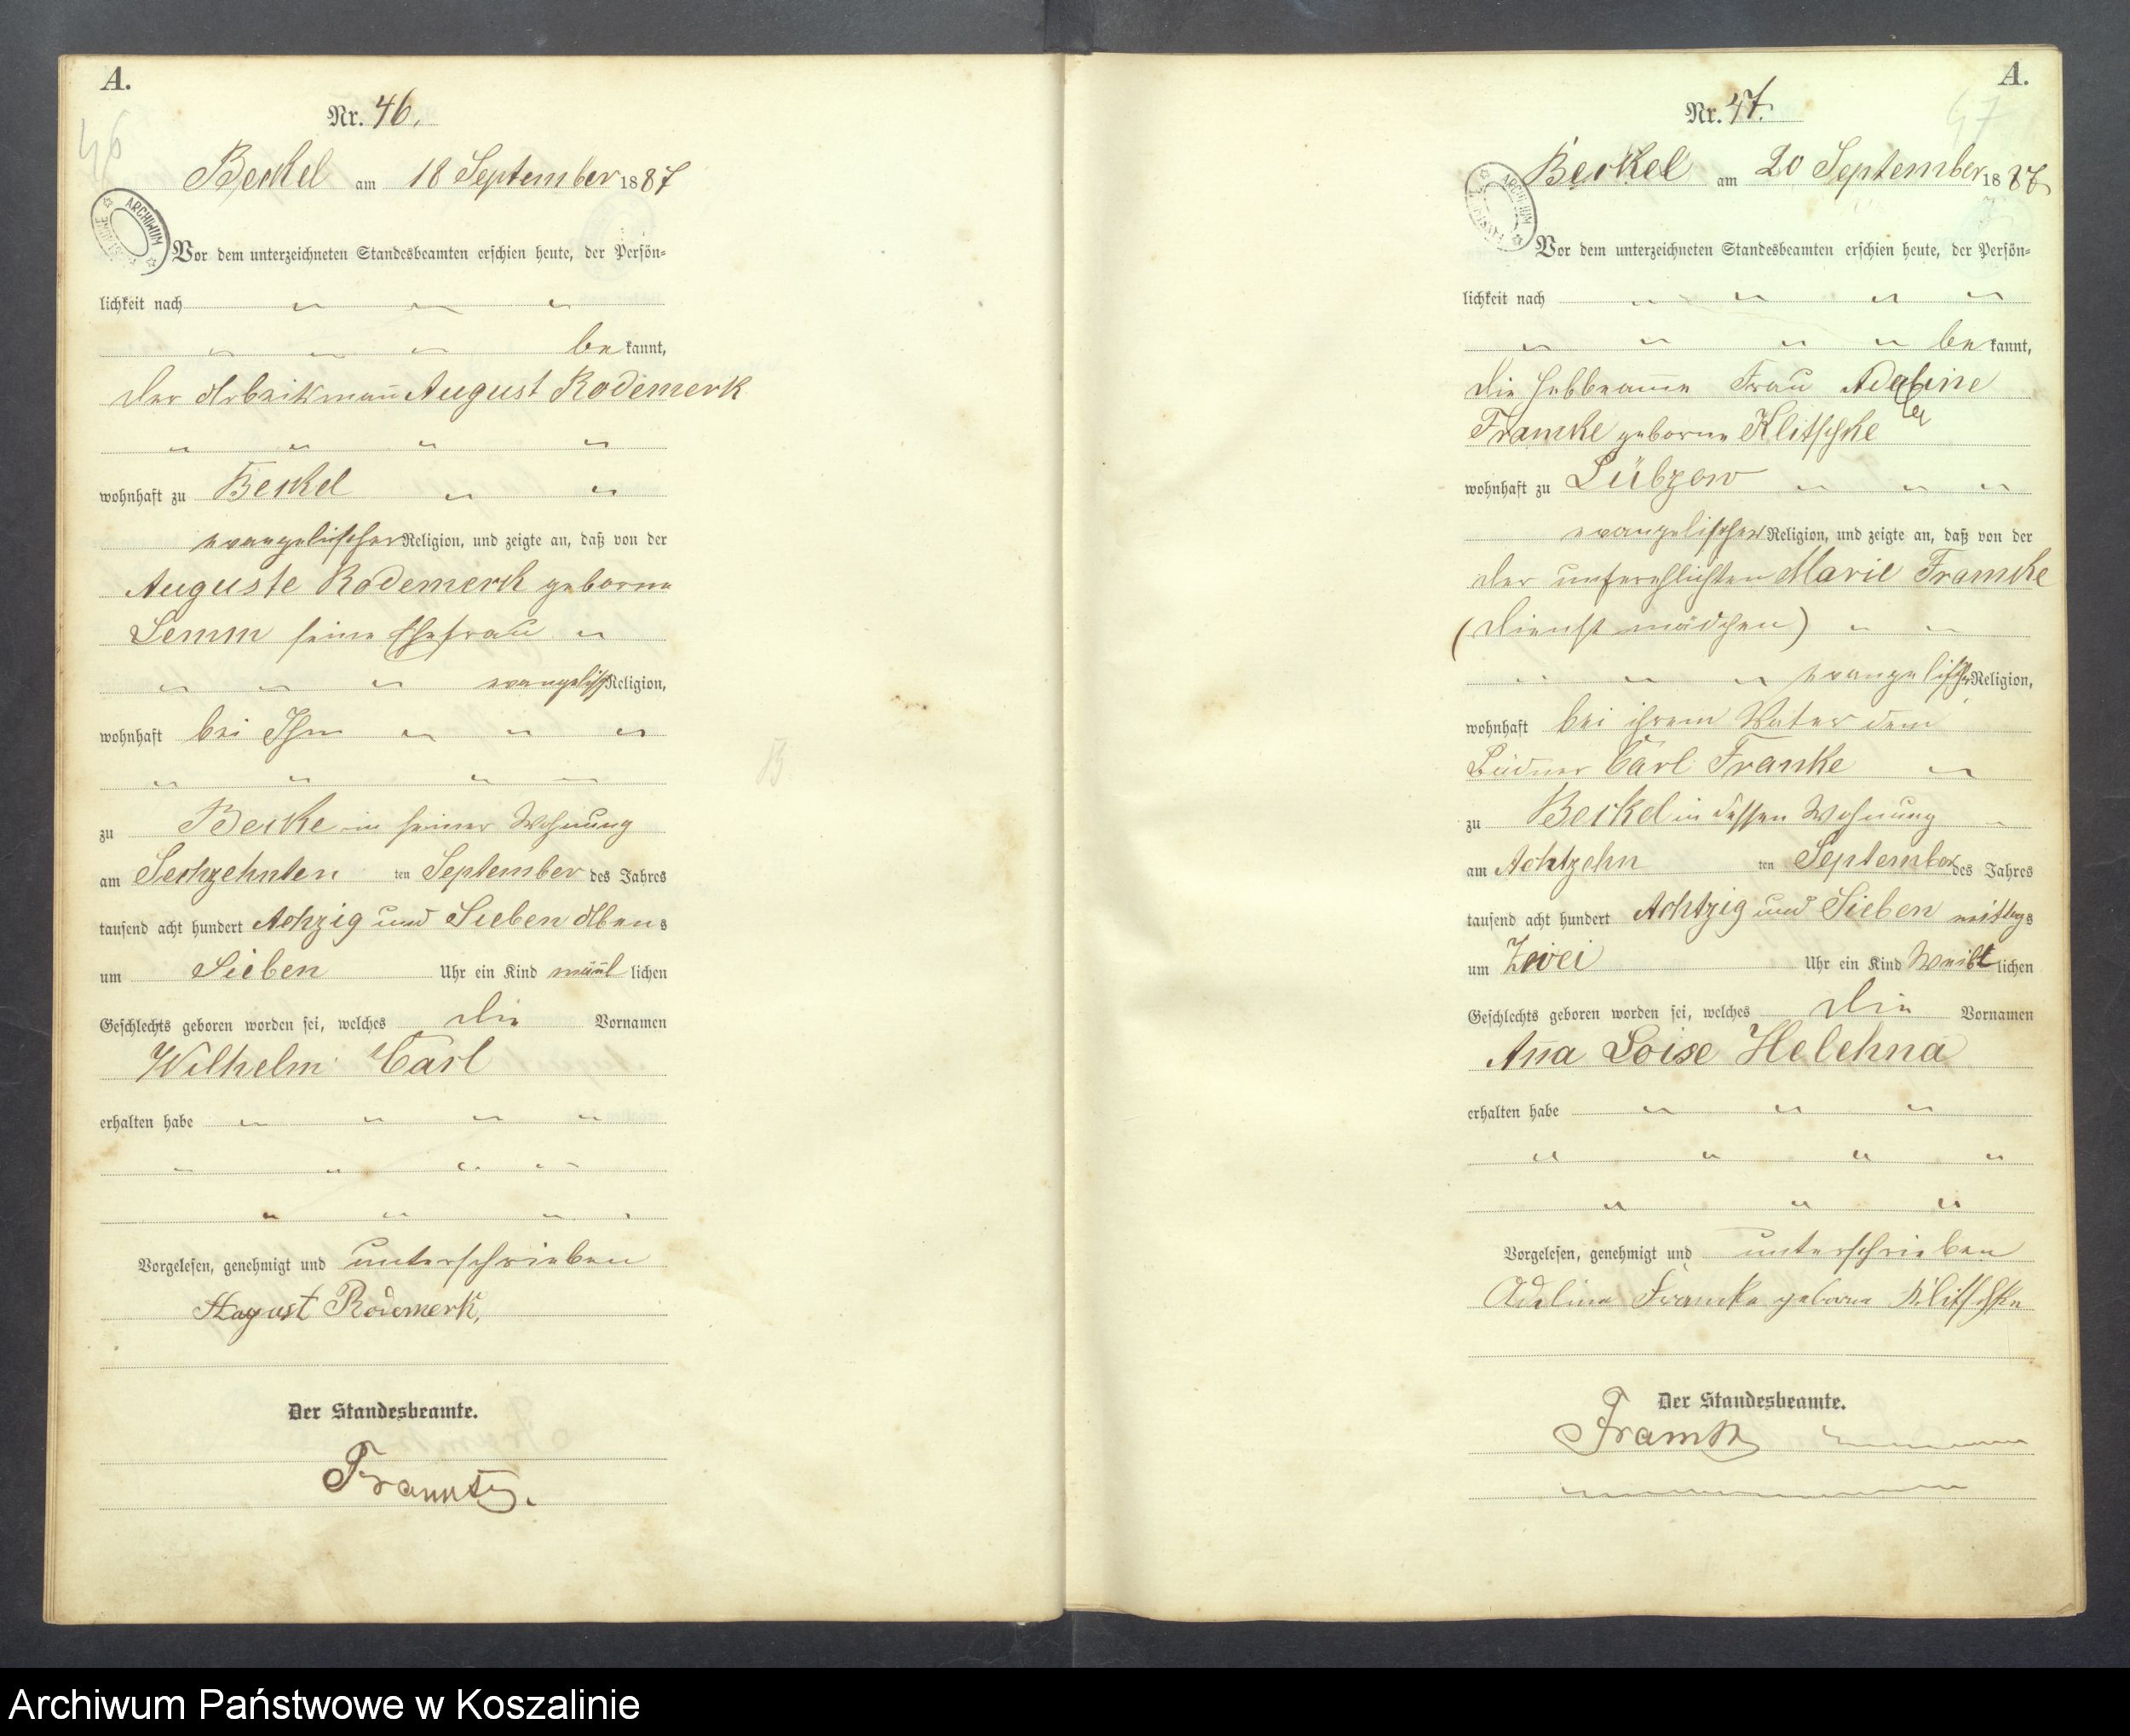 A.
46
Nr. 46.
Beckel am 18 September 1887
ARCHIWUM
Vor dem unterzeichneten Standesbeamten erschien heute, der Persön-
lichkeit nach
be kannt,
der Arbeitsman̄ August Rodemerk
wohnhaft zu Beckel
evangelischer Religion, und zeigte an, daß von der
Auguste Rodemerk geborne
Lemm seine Ehefrau
evangelisch Religion,
wohnhaft bei Ihm
zu Becke in seiner Wohnung
am Sechzehnten ten September des Jahres
tausend acht hundert Achzig und Sieben Abens
um Sieben Uhr ein Kind män̄l lichen
Geschlechts geboren worden sei, welches die Vornamen
Wilhelm Carl
erhalten habe
Vorgelesen, genehmigt und unterschrieben
August Rodemerk,
Der Standesbeamte.
A.
47
Nr. 47.
Beckel am 20 September 1887
ARCHIWUM
Vor dem unterzeichneten Standesbeamten erschien heute, der Persön-
lichkeit nach
be kannt,
die Hebbeam̄e Frau Adeline
Framke geborne Klitschke
wohnhaft zu Lübzow
evangelischer Religion, und zeigte an, daß von der
der unferehlichten Marie Framke
(Dienstmädchen)
evangelischer Religion,
wohnhaft bei ihrem Vater dem
Büdner Carl Franke
zu Beckel in dessen Wohnung
am Achtzehn ten September des Jahres
tausend acht hundert Achtzig und Sieben mittags
um Zwei Uhr ein Kind Weibl lichen
Geschlechts geboren worden sei, welches die Vornamen
An̄a Loise Helehna
erhalten habe
Vorgelesen, genehmigt und unterschrieben
Adeline Framke geborne Klitschke
Der Standesbeamte.
Framke
Archiwum Państwowe w Koszalinie